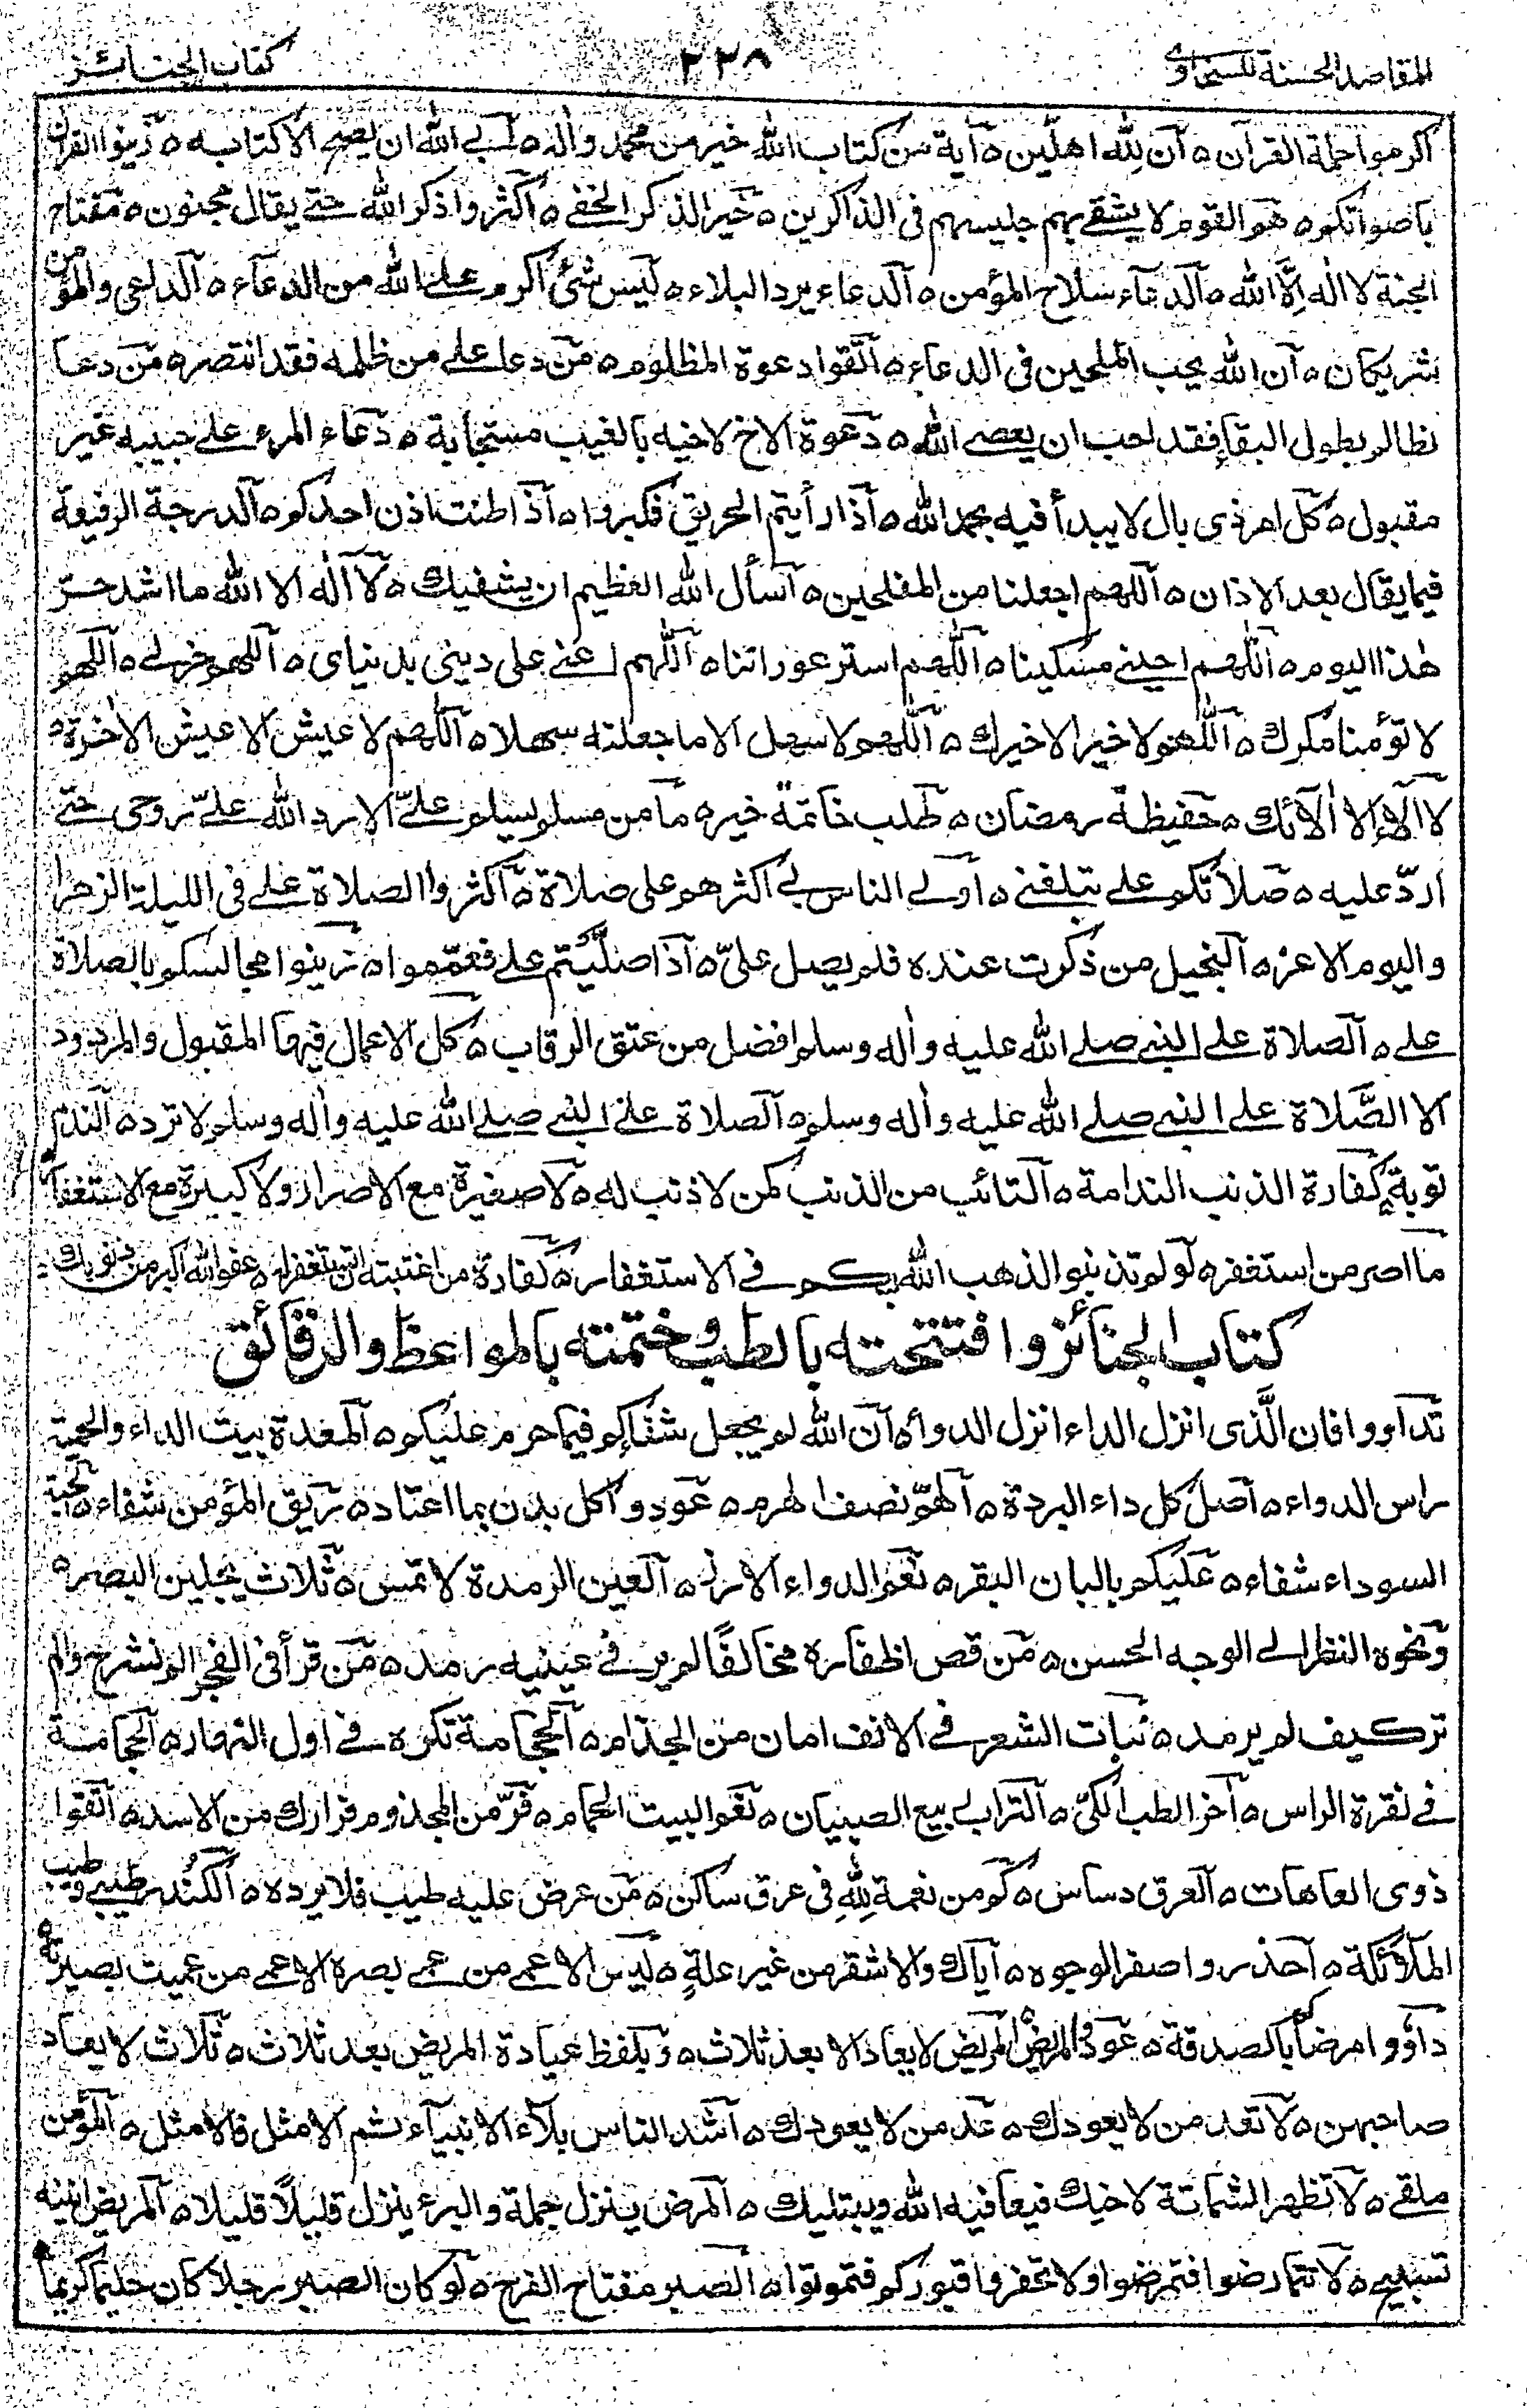 المقاصد الحسنة للسخاوي
٢٢٨
كتاب الجنائز
اكرموا حملة القرآن ٥ ان لله اهلين ٥ آية من كتاب الله خير من محمد واله ٥ ابى الله ان يصح الا كتابه ٥ زينوا القرآن
باصواتكم ٥ هم القوم لا يشقى بهم جليسهم فى الذاكرين ٥ خير الذكر الخفي ٥ اكثروا ذكر الله حتى يقال مجنون ٥ مفتاح
الجنة لا اله الا الله ٥ الدعاء سلاح المؤمن ٥ الدعاء يرد البلاء ٥ ليس شئ اكرم على الله من الدعاء ٥ الداعى والمؤمن
شريكان ٥ ان الله يحب الملحين فى الدعاء ٥ اتقوا دعوة المظلوم ٥ من دعا على من ظلمه فقد انتصر ٥ من دعا
لظالم بطول البقاء فقد احب ان يعصى الله ٥ دعوة الاخ لاخيه بالغيب مستجابة ٥ دعاء المرء على حبيبه غير
مقبول ٥ كل امر ذى بال لا يبدأ فيه بحمد الله ٥ اذا رأيتم الحريق فكبروا ٥ اذا طنت اذن احدكم ٥ الدرجة الرفيعة
فيما يقال بعد الاذان ٥ اللهم اجعلنا من المفلحين ٥ اسأل الله العظيم ان يشفيك ٥ لا اله الا الله ما اشد حر
هذا اليوم ٥ اللهم احيني مسكينا ٥ اللهم استر عوراتنا ٥ اللهم اعني على دينى بدنياى ٥ اللهم خر لي ٥ اللهم
لا تؤمنا مكرك ٥ اللهم لا خير الا خيرك ٥ اللهم لا سهل الا ما جعلته سهلا ٥ اللهم لا عيش الا عيش الاخرة ٥
لا آلاء الا آلائك ٥ حفيظة رمضان ٥ طلب خاتمة خير ٥ ما من مسلم يسلم علي الا رد الله علي روحى حتى
ارد عليه ٥ صلاتكم على تبلغنى ٥ اولى الناس بي اكثرهم على صلاة ٥ اكثروا الصلاة على فى الليلة الزهرا
واليوم الاغر ٥ البخيل من ذكرت عنده فلم يصل علي ٥ اذا صليتم على فعمموا ٥ زينوا مجالسكم بالصلاة
على ٥ الصلاة على النبى صلى الله عليه واله وسلم افضل من عتق الرقاب ٥ كل الاعمال فيها المقبول والمردود
الا الصلاة على النبى صلى الله عليه واله وسلم ٥ الصلاة على النبى صلى الله عليه واله وسلم لا ترد ٥ الندم
توبة ٥ كفارة الذنب الندامة ٥ التائب من الذنب كمن لا ذنب له ٥ لا صغيرة مع الاصرار ولا كبيرة مع الاستغفار
ما اصر من استغفر ٥ لو لم تذنبوا لذهب الله بكم في الاستغفار ٥ كفارة من اغتبته ان تستغفر له ٥ عفو الله اكبر من ذنوبك
كتاب الجنائز وافتتحته بالطب وختمته بالمواعظ والرقائق
تداووا فان الذى انزل الداء انزل الدواء ٥ ان الله لم يجعل شفاءكم فيما حرم عليكم ٥ المعدة بيت الداء والحمية
راس الدواء ٥ اصل كل داء البردة ٥ الهم نصف الهرم ٥ عودوا كل بدن بما اعتاد ٥ ريق المؤمن شفاء ٥ الحبة
السوداء شفاء ٥ عليكم بالبان البقر ٥ نعم الدواء الارز ٥ العين الرمدة لا تمس ٥ ثلاث يجلين البصر ٥
ونحوه النظر الى الوجه الحسن ٥ من قص اظفاره مخالفا لم ير في عينيه رمد ٥ من قرأ فى الفجر الم نشرح والم
تر كيف لم يرمد ٥ نبات الشعر في الانف امان من الجذام ٥ الحجامة تكره في اول النهار ٥ الحجامة
في نقرة الراس ٥ آخر الطب الكي ٥ التراب ربيع الصبيان ٥ نعم البيت الحمام ٥ فر من المجذوم فرارك من الاسد ٥ اتقوا
ذوى العاهات ٥ العرق دساس ٥ كم من نعمة لله فى عرق ساكن ٥ من عرض عليه طيب فلا يرده ٥ الكندر طيبي وطيب
الملائكة ٥ احذروا صفر الوجوه ٥ اياك والاشقر من غير علة ٥ ليس الاعمى من عمى بصره الاعمى من عميت بصيرته ٥
داووا مرضاكم بالصدقة ٥ عودوا المريض المريض لا يعاد الا بعد ثلاث ٥ وبلفظ عيادة المريض بعد ثلاث ٥ ثلاث لا يعاد
صاحبهن ٥ لا تعد من لا يعودك ٥ عد من لا يعودك ٥ اشد الناس بلاء الانبياء ثم الامثل فالامثل ٥ المؤمن
ملقى ٥ لا تظهر الشماتة لاخيك فيعافيه الله ويبتليك ٥ المرض ينزل جملة والبرء ينزل قليلا قليلا ٥ المريض انينه
تسبيح ٥ لا تتمارضوا فتمرضوا ولا تحفروا قبوركم فتموتوا ٥ الصبر مفتاح الفرج ٥ لو كان الصبر رجلا كان حليما كريما